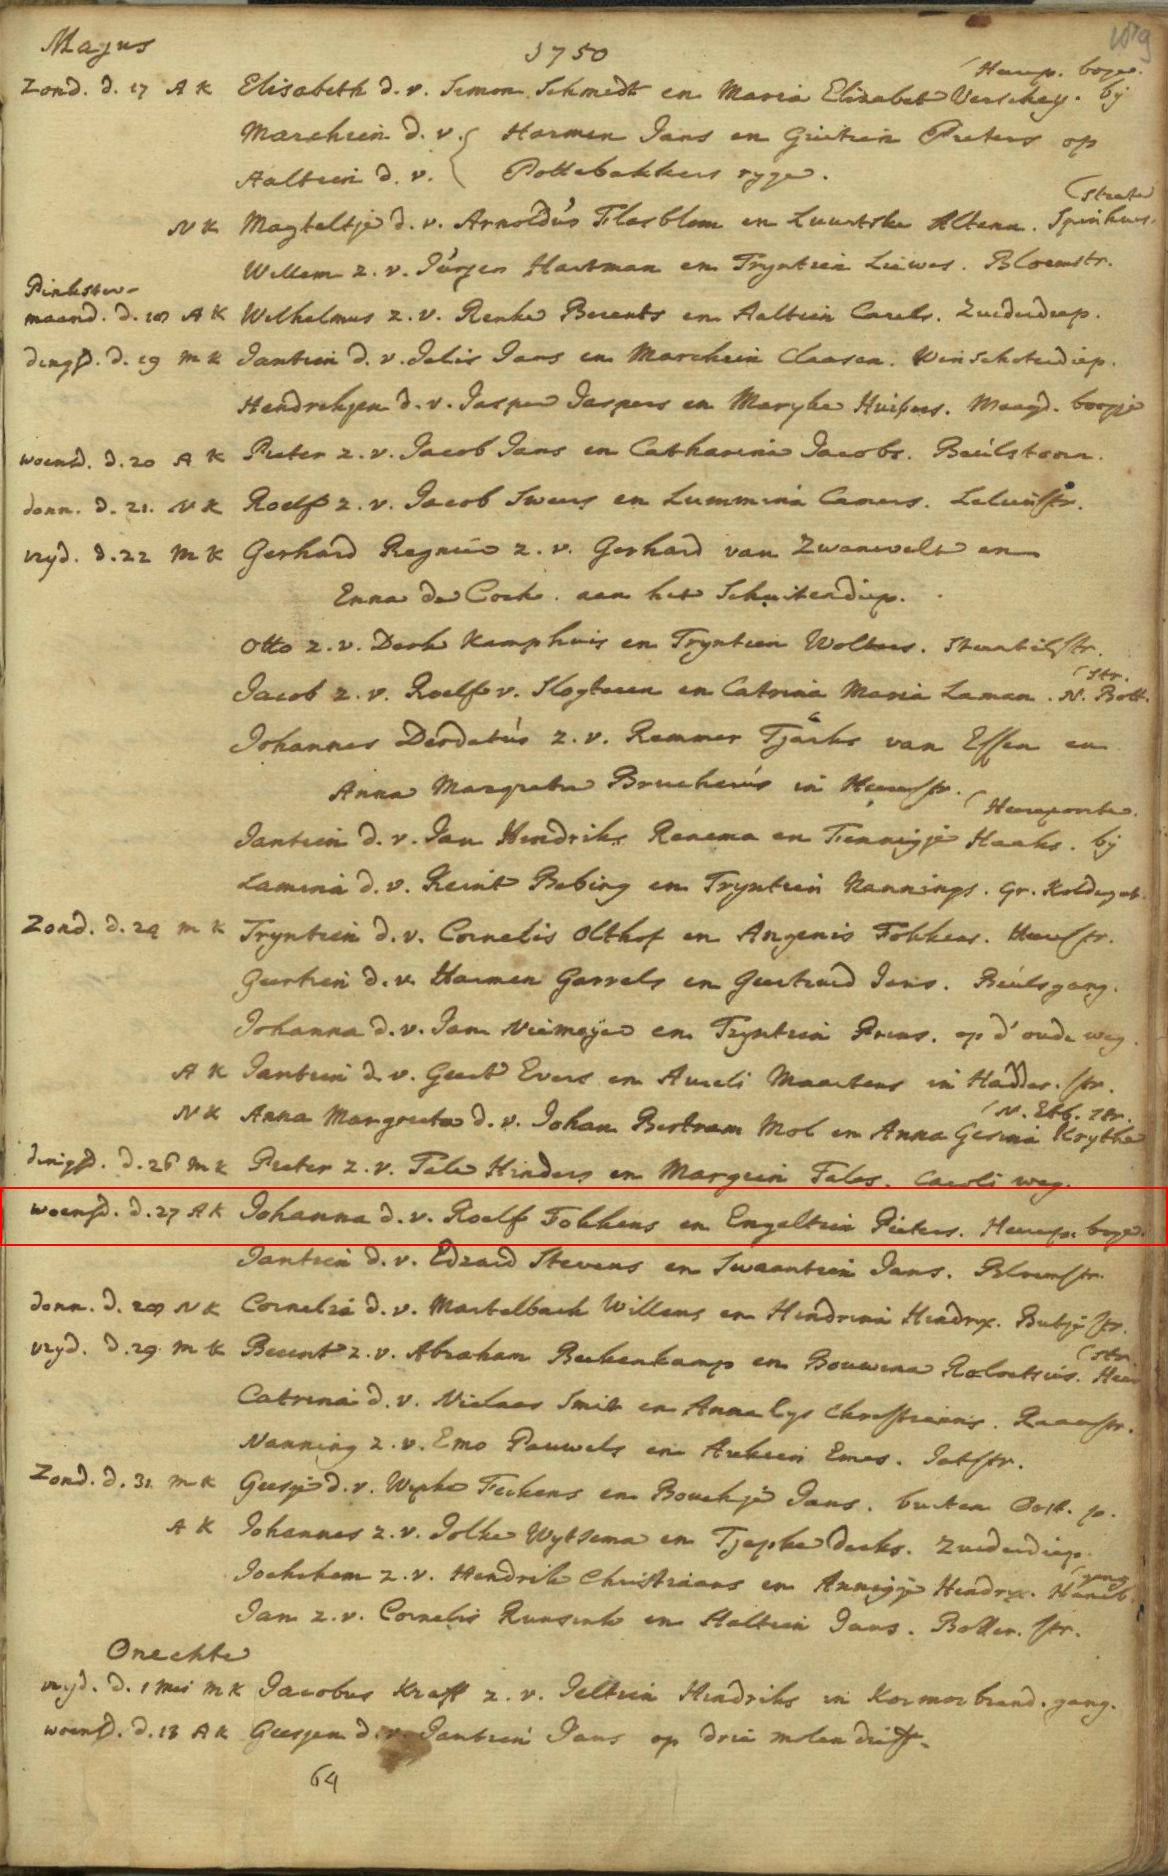 Majus 1750
Zond. d. 17 A K Elisabeth d. v. Simon Schmedt en Maria Elisabet Verschey. bij
Marchien d. v. { Harmen Jans en Grietien Pieters op
Aaltien d. v. Pottebakkers ryge.
(Straete
N K Magteltje d. v. Arnoldús Flasblom en Luurtske Altena. Spinhuis-
Willem z. v. Júrgen Hartman en Tryntien Liewes. Bloemstr.
Pinkster-
maend. d. 18 A K Wilhelmus z. v. Renke Berents en Aaltien Carels. Zuiderdiep.
dingsd. d. 19 M K Jantien d. v. Jelis Jans en Marchien Claasen. Winschoterdiep.
Hendrikjen d. v. Jasper Jaspers en Maryke Huipers. Maagd. boogje
woensd. d. 20 A K Pieter z. v. Jacob Jans en Catharina Jacobs. Beúlstoren.
donn. d. 21. N K Roelf z. v. Jacob Sweers en Lummina Camers. Lelienstr.
vryd. d. 22 M K Gerhard Regnier z. v. Gerhard van Zwanevelt en
Enna de Cock. aan het Schuitendiep.
Otto z. v. Derk Kamphuis en Tryntien Wolters. Steentilstr.
(str.
Jacob z. v. Roelf v. Slogteren en Catrina Maria Laman. N. Bott.
Johannes Deodatús z. v. Remmer Tjarks van Essen en
Anna Margreta Brucherús in Heerestr.
(Heerepoorte.
Jantien d. v. Jan Hindriks Renema en Fennigje Haaks. bij
Lamina d. v. Reint Bebing en Tryntien Nannings. Gr. Koldegat.
Zond. d. 24 M K Tryntien d. v. Cornelis Olthof en Angenis Fokkens. Heerestr.
Geertien d. v. Harmen Garrels en Geertruid Jans. Beúlsgang.
Johanna d. v. Jan Niemeyer en Tryntien Prins. op d' oude weg.
A K Jantien d. v. Geert Evers en Aureli Maartens in Hadder. str.
(N. Ebb. str.
N K Anna Margreeta d. v. Johan Bertram Mol en Anna Gesina Krythe
dingsd. d. 26 M K Pieter z. v. Tale Hinders en Margien Tales. Caroli weg.
woensd. d. 27 A K Johanna d. v. Roelf Fokkens en Engeltien Pieters. Heerep. boge.
Jantien d. v. Edzard Stevens en Swaantien Jans. Bloemstr.
donn. d. 28 N K Cornelia d. v. Martelbach Willems en Hindrina Hindrix. Butjestr.
(str.
vryd. d. 29 M K Berent z. v. Abraham Berkenkamp en Bouwina Roloetsiús. Heer
Catrina d. v. Niclaas Smit en Anna Lys Christiaans. Raamstr.
Nanning z. v. Emo Pauwels en Aukien Emes. Jatstr.
Zond. d. 31 M K Geesje d. v. Wipke Feckens en Bouchje Jans. buiten Oost. p.
A K Johannes z. v. Jolke Wytsema en Tjepke derks. Zuiderdiep.
(gang
Jochchem z. v. Hendrik Christiaans en Annigje Hendrix.
Jan z. v. Cornelis Runsink en Aaltien Jans. Botter. str.
Onechte
vryd. d. 1 Mei M K Jacobus Kraft z. v. Jeltien Hindriks in Kormorbrand. gang.
woensd. d. 13 A K Geesjen d. v. Jantien Jans op drie molen drift.
64